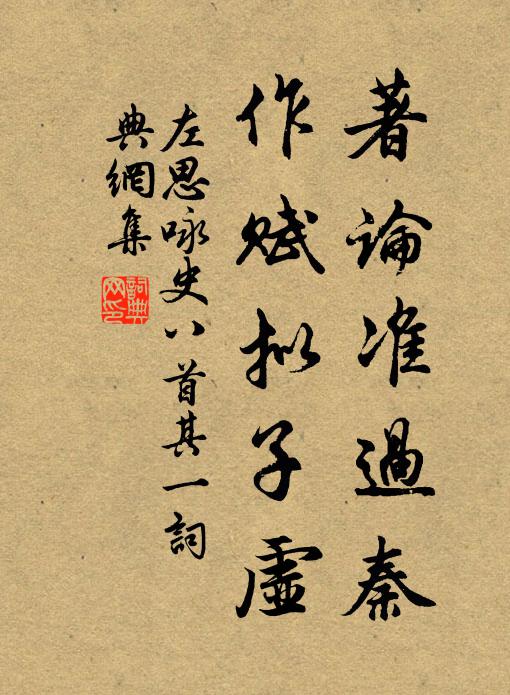 著論准過秦
作賦拟子虛
左思咏史八首其一詞
典網集
詞典
网印